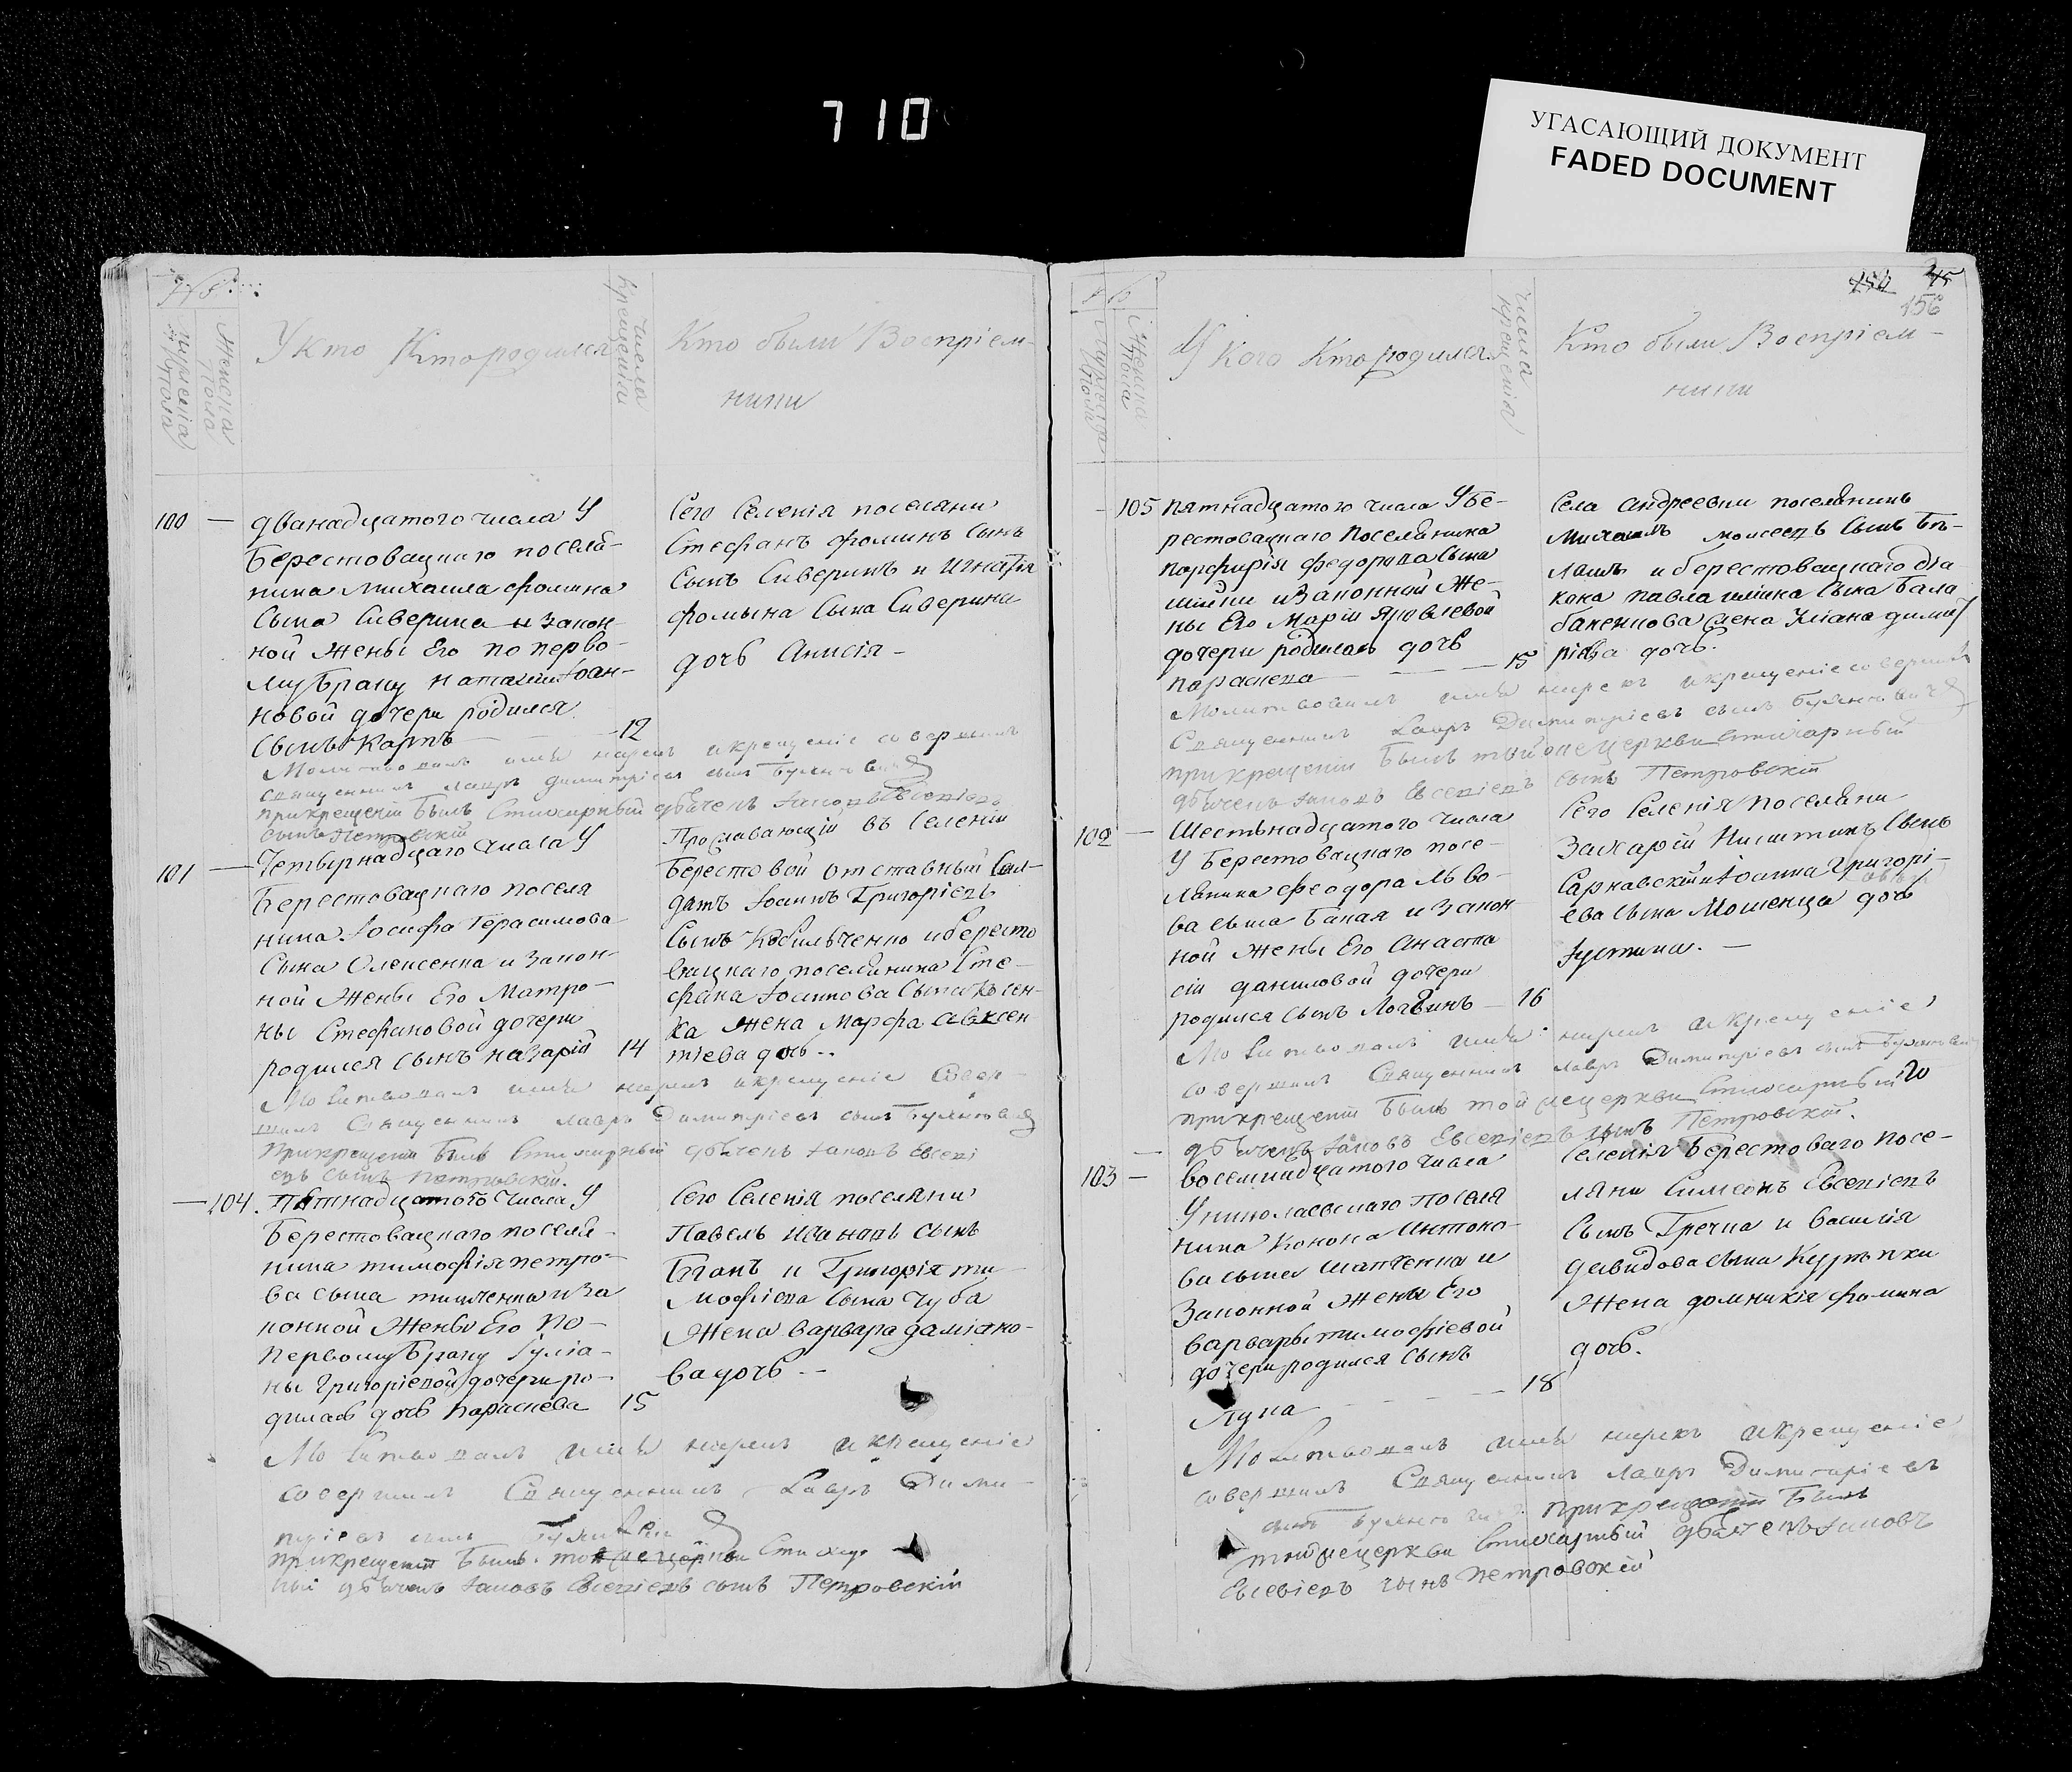 710
УГАСАЮЩИЙ ДОКУМЕНТ
FADED DOCUMENT
№
мужеска пола
Женска пола
У кто Кто родился
числа крещения
Кто были Воспріем-
ники
100 — дванадцатого числа У
Берестовацкаго поселя-
нина Михаила Фомина
сына Сиверина и закон-
ной жены Его по перво-
му браку Наталіи Іоан-
новой дочери родился
сынъ Карпъ — 12
Сего Селенія поселяни
Стефанъ Фоминъ Сынъ
Сынъ Сиверинъ и Игнатія
Фомына Сына Сиверина
дочь Анисія —
Молитвовалъ имя нарекъ и крещеніе совершилъ
священникъ Лавръ Димитріевъ сынъ
при крещеніи былъ Стихарный дьячекъ Іаковъ Евсевіевъ
сынъ Петровскій
101 — Четвернадцаго числа У
Берестовацкаго поселя
нина Іосифа Герасимова
Сына Олексенка и закон-
ной жены Его Матро-
ны Стефановой дочери
родился сынъ Назарій 14
Проживающій въ Селеніи
Берестовой отставный Сол-
датъ Іоаннъ Григоріевъ
Сынъ Кобильченко и Бересто
вацкаго поселянина Сте-
фана Іоаннова Сына
ка жена Марфа Авксен
тіева дочь..
Молитвовалъ имя нарекъ и крещеніе Совер-
шилъ Священникъ Лавръ Димитріевъ сынъ
при крещеніи былъ Стихарный дьячекъ Іаковъ Евсеві
евъ сынъ Петровскій.
— 104. Пятнадцатого числа У
Берестовацкаго поселя-
нина Тимофія Петро-
ва сына и за
конной жены Его по-
первому браку Іуліа-
ны Григоріевой дочери ро-
дилась дочь Параскева 15
Сего Селенія поселяни
Павелъ Ивановъ сынъ
Беганъ и Григорія Ти
мофіева Сына Чуба
жена Варвара Даміано-
ва дочь —
Молитвовалъ имя нарекъ и крещеніе
совершилъ Священникъ Лавръ Дими-
тріевъ сынъ
при крещеніи былъ той же церкви Стихар
ный дьячекъ Іаковъ Евсевіевъ сынъ Петровскій
156
№
Мужеска пола
Женска пола
У Кого Кто родился
числа крещенія
Кто были Воспріем-
ники
105 Пятнадцатого числа У Бе-
рестовацкаго Поселянина
Порфирія Федорова Сына
и Законной Же-
ны Его Маріи Яковлевой
дочери родилась дочь
Параскева — 15
Села Андреевки поселянинъ
Михаилъ Моисеевъ Сынъ
и берестовацкаго діа
кона Павла Сына Бала
баненкова жена Уліана Димит
ріева дочь.
Молитвовалъ имя нарекъ и крещеніе совершилъ
Священникъ Лавръ Димитріевъ сынъ
при крещеніи былъ той же церкви стихарный
дьячекъ Іаковъ Евсевіевъ сынъ Петровскій
102 — Шестьнадцатого числа
У Берестовацкаго посе-
лянина Феодора Льво-
ва сына Бакая и закон
ной жены Его Анаста
сіи Даниловой дочери
родился сынъ Логвинъ — 16
Сего Селенія поселяни
Захарій Никитинъ Сынъ
Сарнавскій и Іоанна Григорі-
ева сына Мошенца дочь
Іустина. —
Молитвовалъ имя нарекъ и крещеніе
совершилъ Священникъ Лавръ Димитріевъ сынъ
при крещеніи былъ той же церкви Стихарный
дьячекъ Іаковъ Евсевіевъ сынъ Петровскій.
103 — Восемнадцатого числа
У Николаевскаго Поселя
нина Конона Антоно-
ва сына Шапченка и
Законной жены Его
Варвары Тимофіевой
дочери родился сынъ
Лука — 18
Селенія Берестоваго посе-
ляни Симеонъ Евсевіевъ
Сынъ Гречка и Василія
Давидова сына Курпки
жена Домникія Фомина
дочь.
Молитвовалъ имя нарекъ и крещеніе
совершилъ Священникъ Лавръ Димитріевъ
сынъ при крещеніи былъ
той же церкви Стихарный дьячекъ Іаковъ
Евсевіевъ сынъ Петровскій